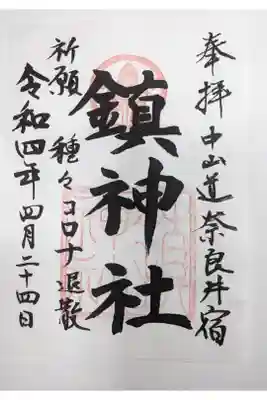 奉拝 中山道奈良井宿
鎮神社
祈願 種々コロナ退散
令和四年四月二十四日